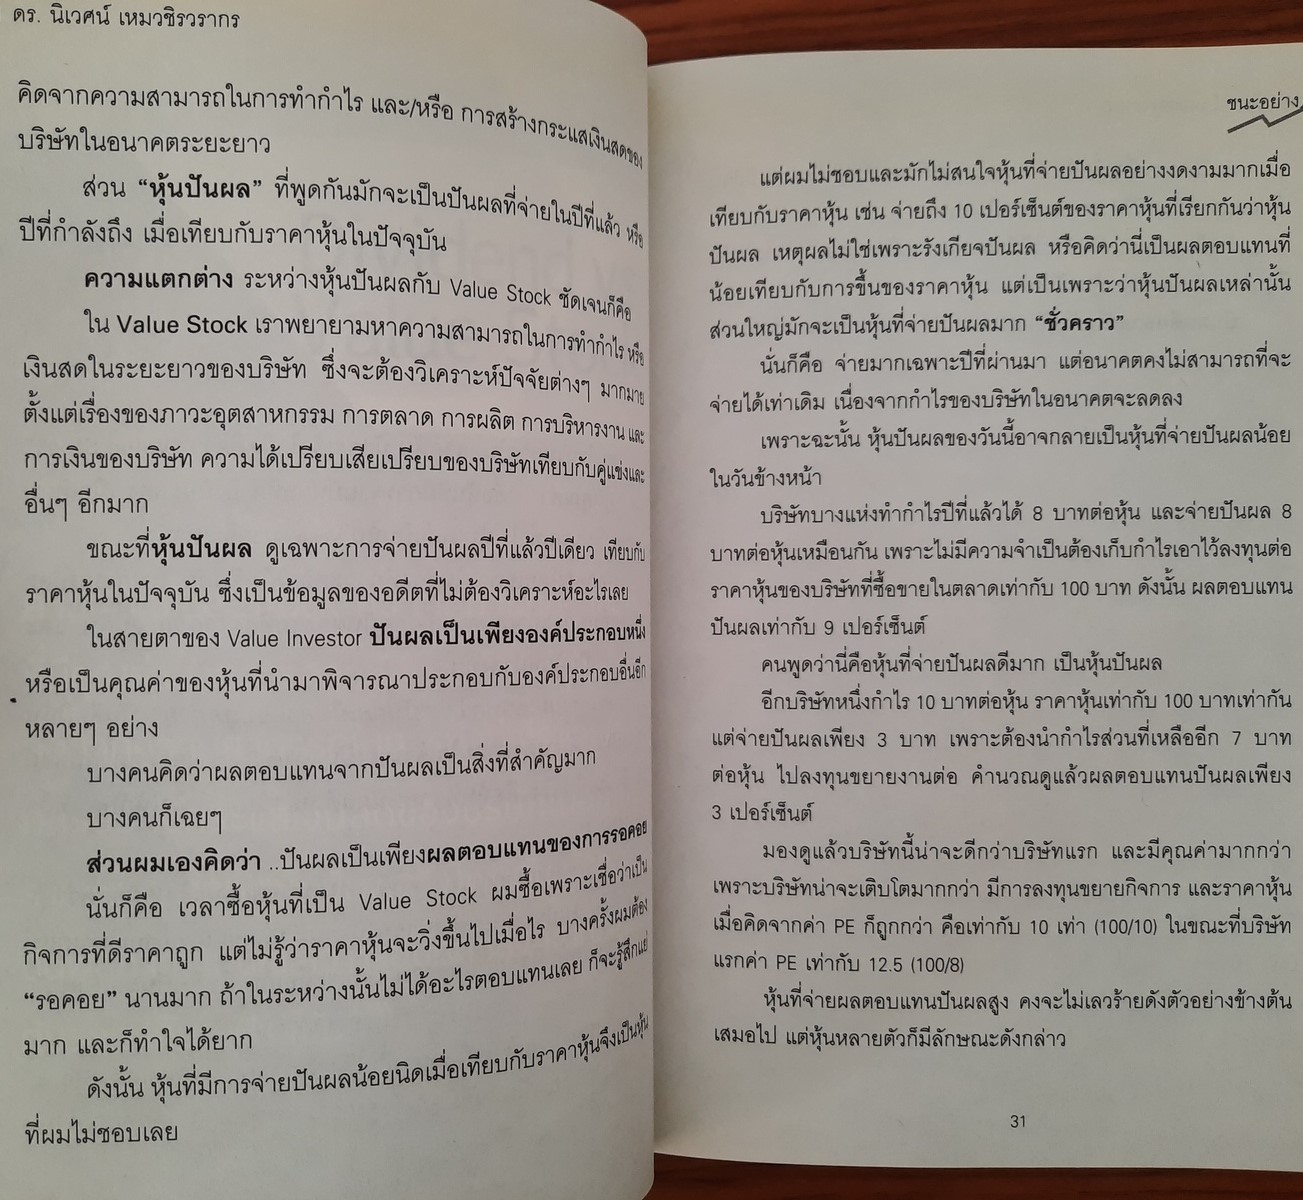 ดร. นิเวศน์ เหมวชิรวรากร
คิดจากความสามารถในการทำกำไร และ/หรือ การสร้างกระแสเงินสดของ
บริษัทในอนาคตระยะยาว
ส่วน “หุ้นปันผล” ที่พูดกันมักจะเป็นปันผลที่จ่ายในปีที่แล้ว หรือ
ปีที่กำลังถึง เมื่อเทียบกับราคาหุ้นในปัจจุบัน
ความแตกต่าง ระหว่างหุ้นปันผลกับ Value Stock ชัดเจนก็คือ
ใน Value Stock เราพยายามหาความสามารถในการทำกำไร หรือ
เงินสดในระยะยาวของบริษัท ซึ่งจะต้องวิเคราะห์ปัจจัยต่างๆ มากมาย
ตั้งแต่เรื่องของภาวะอุตสาหกรรม การตลาด การผลิต การบริหารงาน และ
การเงินของบริษัท ความได้เปรียบเสียเปรียบของบริษัทเทียบกับคู่แข่งและ
อื่นๆ อีกมาก
ขณะที่หุ้นปันผล ดูเฉพาะการจ่ายปันผลปีที่แล้วปีเดียว เทียบกับ
ราคาหุ้นในปัจจุบัน ซึ่งเป็นข้อมูลของอดีตที่ไม่ต้องวิเคราะห์อะไรเลย
ในสายตาของ Value Investor ปันผลเป็นเพียงองค์ประกอบหนึ่ง
หรือเป็นคุณค่าของหุ้นที่นำมาพิจารณาประกอบกับองค์ประกอบอื่นอีก
หลายๆ อย่าง
บางคนคิดว่าผลตอบแทนจากปันผลเป็นสิ่งที่สำคัญมาก
บางคนก็เฉยๆ
ส่วนผมเองคิดว่า ..ปันผลเป็นเพียงผลตอบแทนของการรอคอย
นั่นก็คือ เวลาซื้อหุ้นที่เป็น Value Stock ผมซื้อเพราะเชื่อว่าเป็น
กิจการที่ดีราคาถูก แต่ไม่รู้ว่าราคาหุ้นจะวิ่งขึ้นไปเมื่อไร บางครั้งผมต้อง
“รอคอย” นานมาก ถ้าในระหว่างนั้นไม่ได้อะไรตอบแทนเลย ก็จะรู้สึกแย่
มาก และก็ทำใจได้ยาก
ดังนั้น หุ้นที่มีการจ่ายปันผลน้อยนิดเมื่อเทียบกับราคาหุ้นจึงเป็นหุ้น
ที่ผมไม่ชอบเลย
ชนะอย่าง
แต่ผมไม่ชอบและมักไม่สนใจหุ้นที่จ่ายปันผลอย่างงดงามมากเมื่อ
เทียบกับราคาหุ้น เช่น จ่ายถึง 10 เปอร์เซ็นต์ของราคาหุ้นที่เรียกกันว่าหุ้น
ปันผล เหตุผลไม่ใช่เพราะรังเกียจปันผล หรือคิดว่านี่เป็นผลตอบแทนที่
น้อยเทียบกับการขึ้นของราคาหุ้น แต่เป็นเพราะว่าหุ้นปันผลเหล่านั้น
ส่วนใหญ่มักจะเป็นหุ้นที่จ่ายปันผลมาก “ชั่วคราว”
นั่นก็คือ จ่ายมากเฉพาะปีที่ผ่านมา แต่อนาคตคงไม่สามารถที่จะ
จ่ายได้เท่าเดิม เนื่องจากกำไรของบริษัทในอนาคตจะลดลง
เพราะฉะนั้น หุ้นปันผลของวันนี้อาจกลายเป็นหุ้นที่จ่ายปันผลน้อย
ในวันข้างหน้า
บริษัทบางแห่งทำกำไรปีที่แล้วได้ 8 บาทต่อหุ้น และจ่ายปันผล 8
บาทต่อหุ้นเหมือนกัน เพราะไม่มีความจำเป็นต้องเก็บกำไรเอาไว้ลงทุนต่อ
ราคาหุ้นของบริษัทที่ซื้อขายในตลาดเท่ากับ 100 บาท ดังนั้น ผลตอบแทน
ปันผลเท่ากับ 9 เปอร์เซ็นต์
คนพูดว่านี่คือหุ้นที่จ่ายปันผลดีมาก เป็นหุ้นปันผล
อีกบริษัทหนึ่งกำไร 10 บาทต่อหุ้น ราคาหุ้นเท่ากับ 100 บาทเท่ากัน
แต่จ่ายปันผลเพียง 3 บาท เพราะต้องนำกำไรส่วนที่เหลืออีก 7 บาท
ต่อหุ้น ไปลงทุนขยายงานต่อ คำนวณดูแล้วผลตอบแทนปันผลเพียง
3 เปอร์เซ็นต์
มองดูแล้วบริษัทนี้น่าจะดีกว่าบริษัทแรก และมีคุณค่ามากกว่า
เพราะบริษัทน่าจะเติบโตมากกว่า มีการลงทุนขยายกิจการ และราคาหุ้น
เมื่อคิดจากค่า PE ก็ถูกกว่า คือเท่ากับ 10 เท่า (100/10) ในขณะที่บริษัท
แรกค่า PE เท่ากับ 12.5 (100/8)
หุ้นที่จ่ายผลตอบแทนปันผลสูง คงจะไม่เลวร้ายดังตัวอย่างข้างต้น
เสมอไป แต่หุ้นหลายตัวก็มีลักษณะดังกล่าว
31